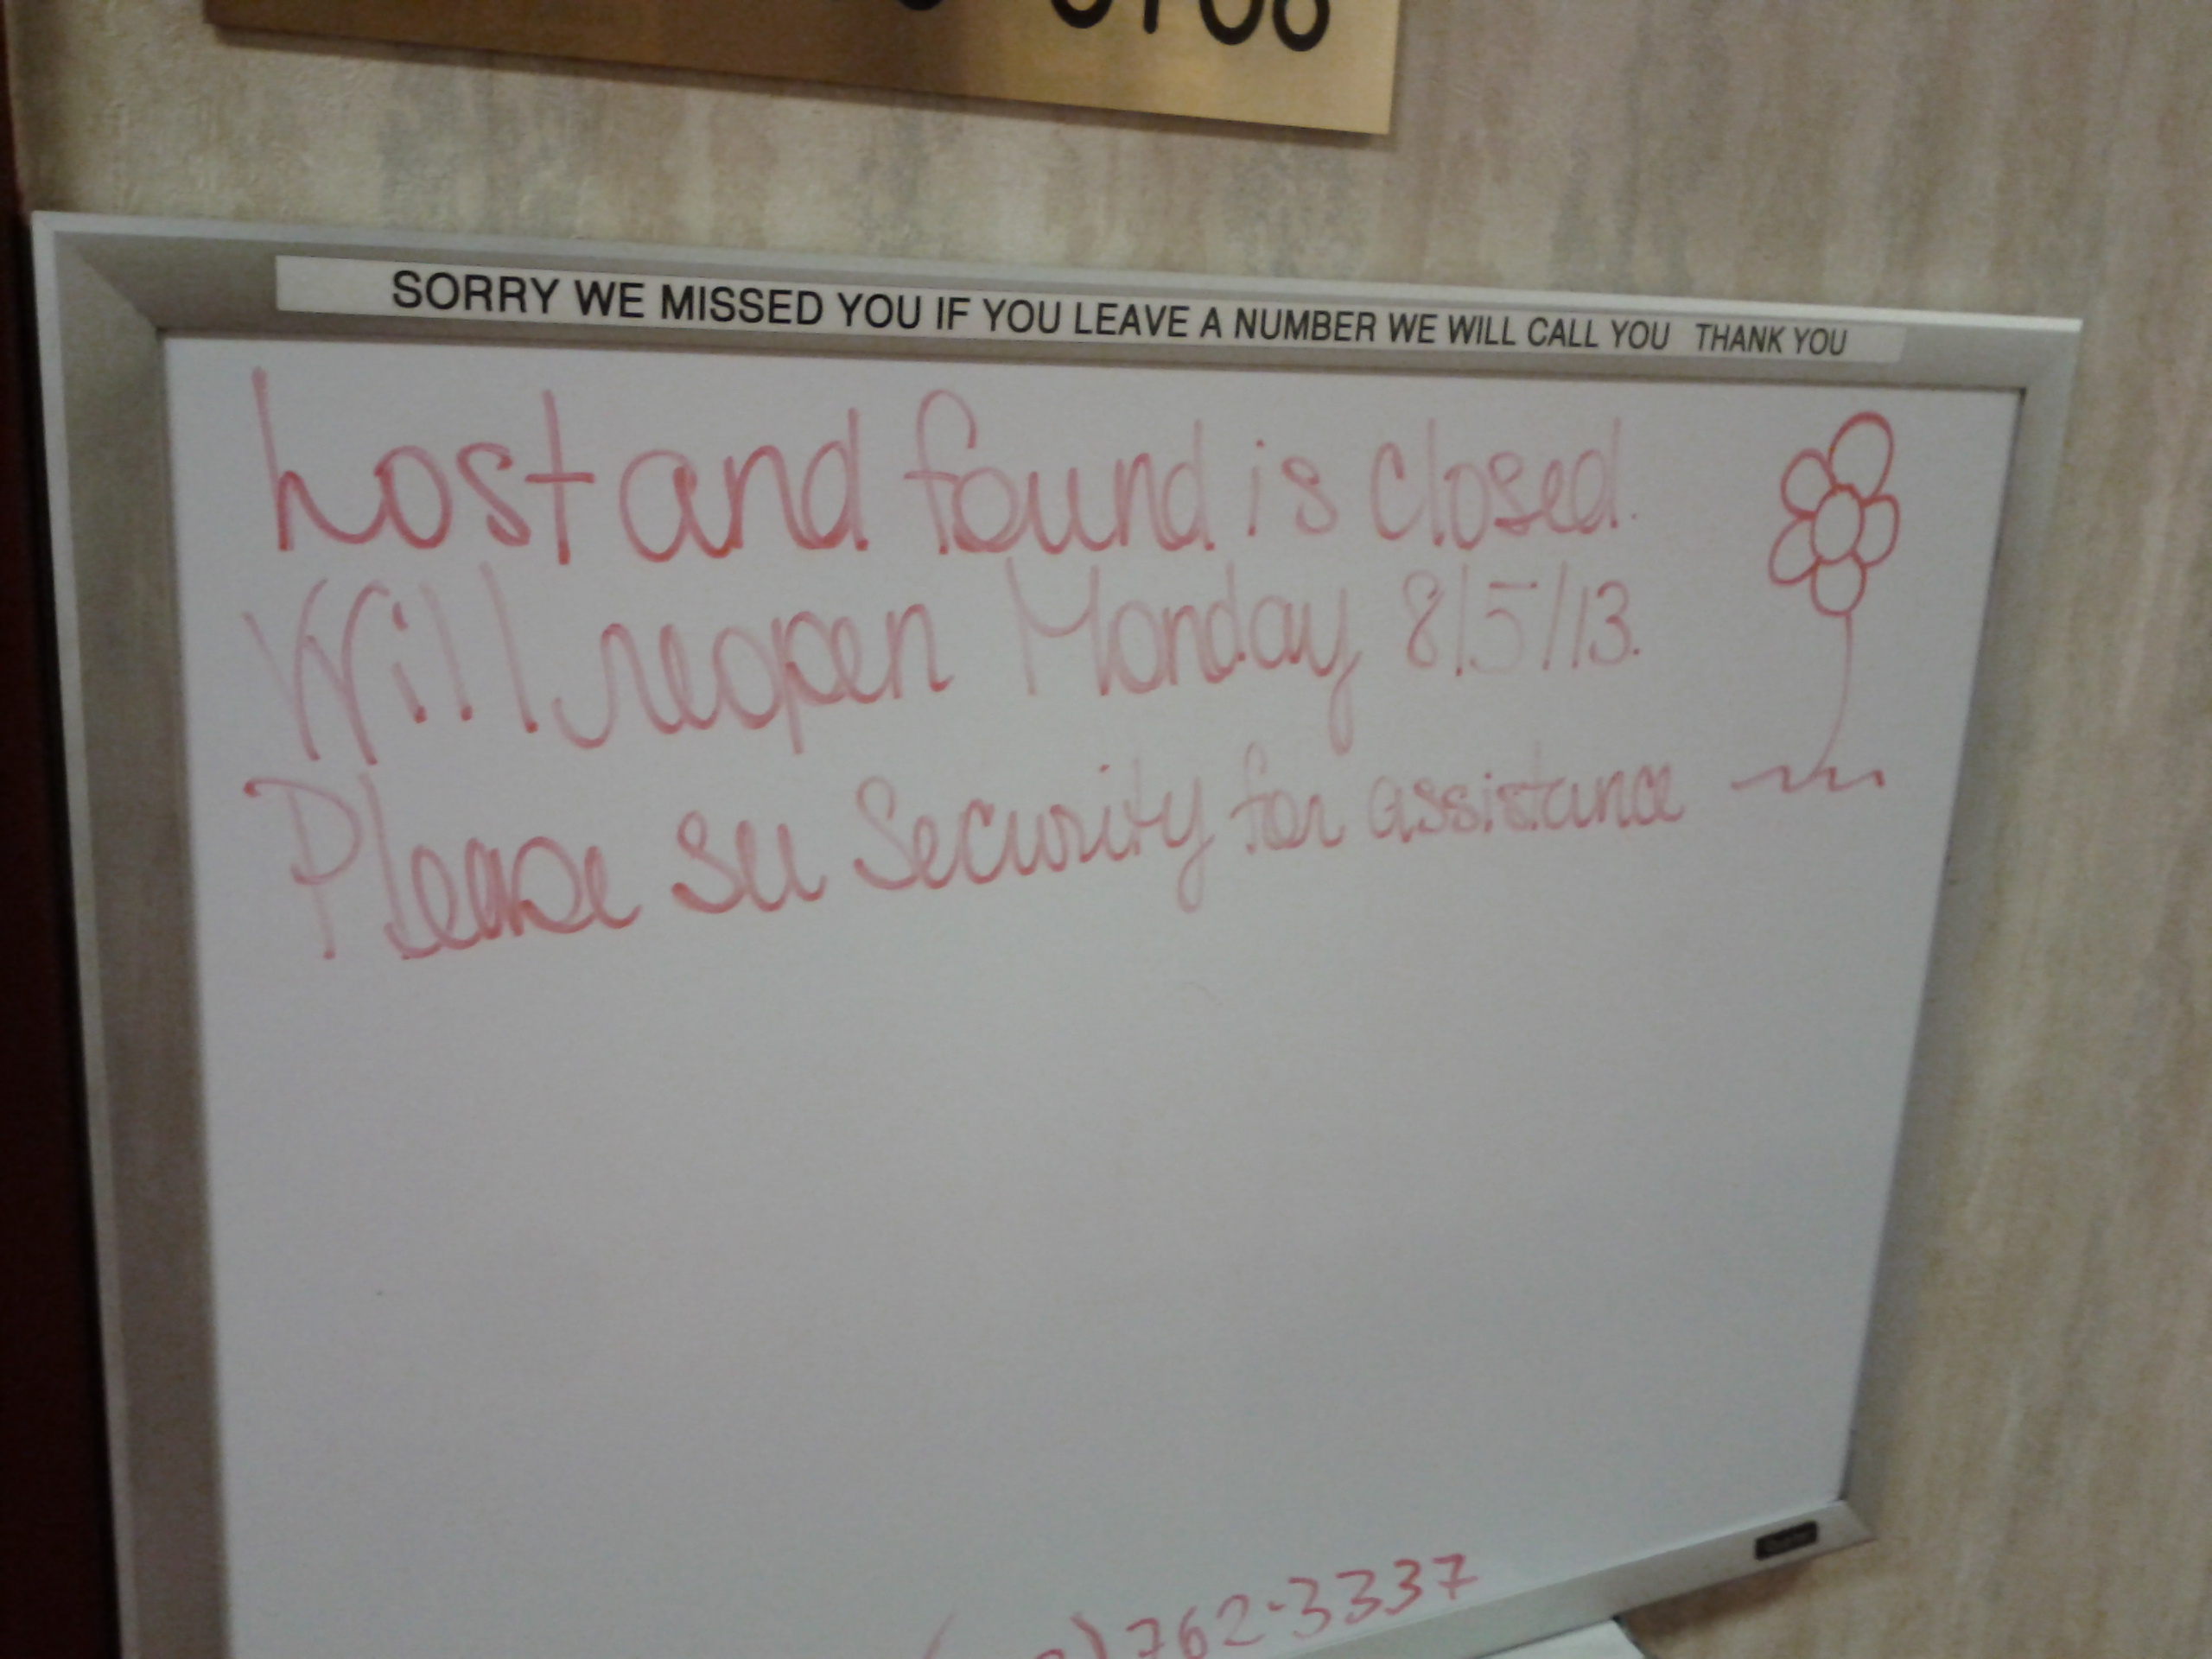 SORRY WE MISSED YOU IF YOU LEAVE A NUMBER WE WILL CALL YOU THANK YOU
Lost and found is closed.
Will reopen Monday 8/5/13.
Please see Security for assistance
762-3337